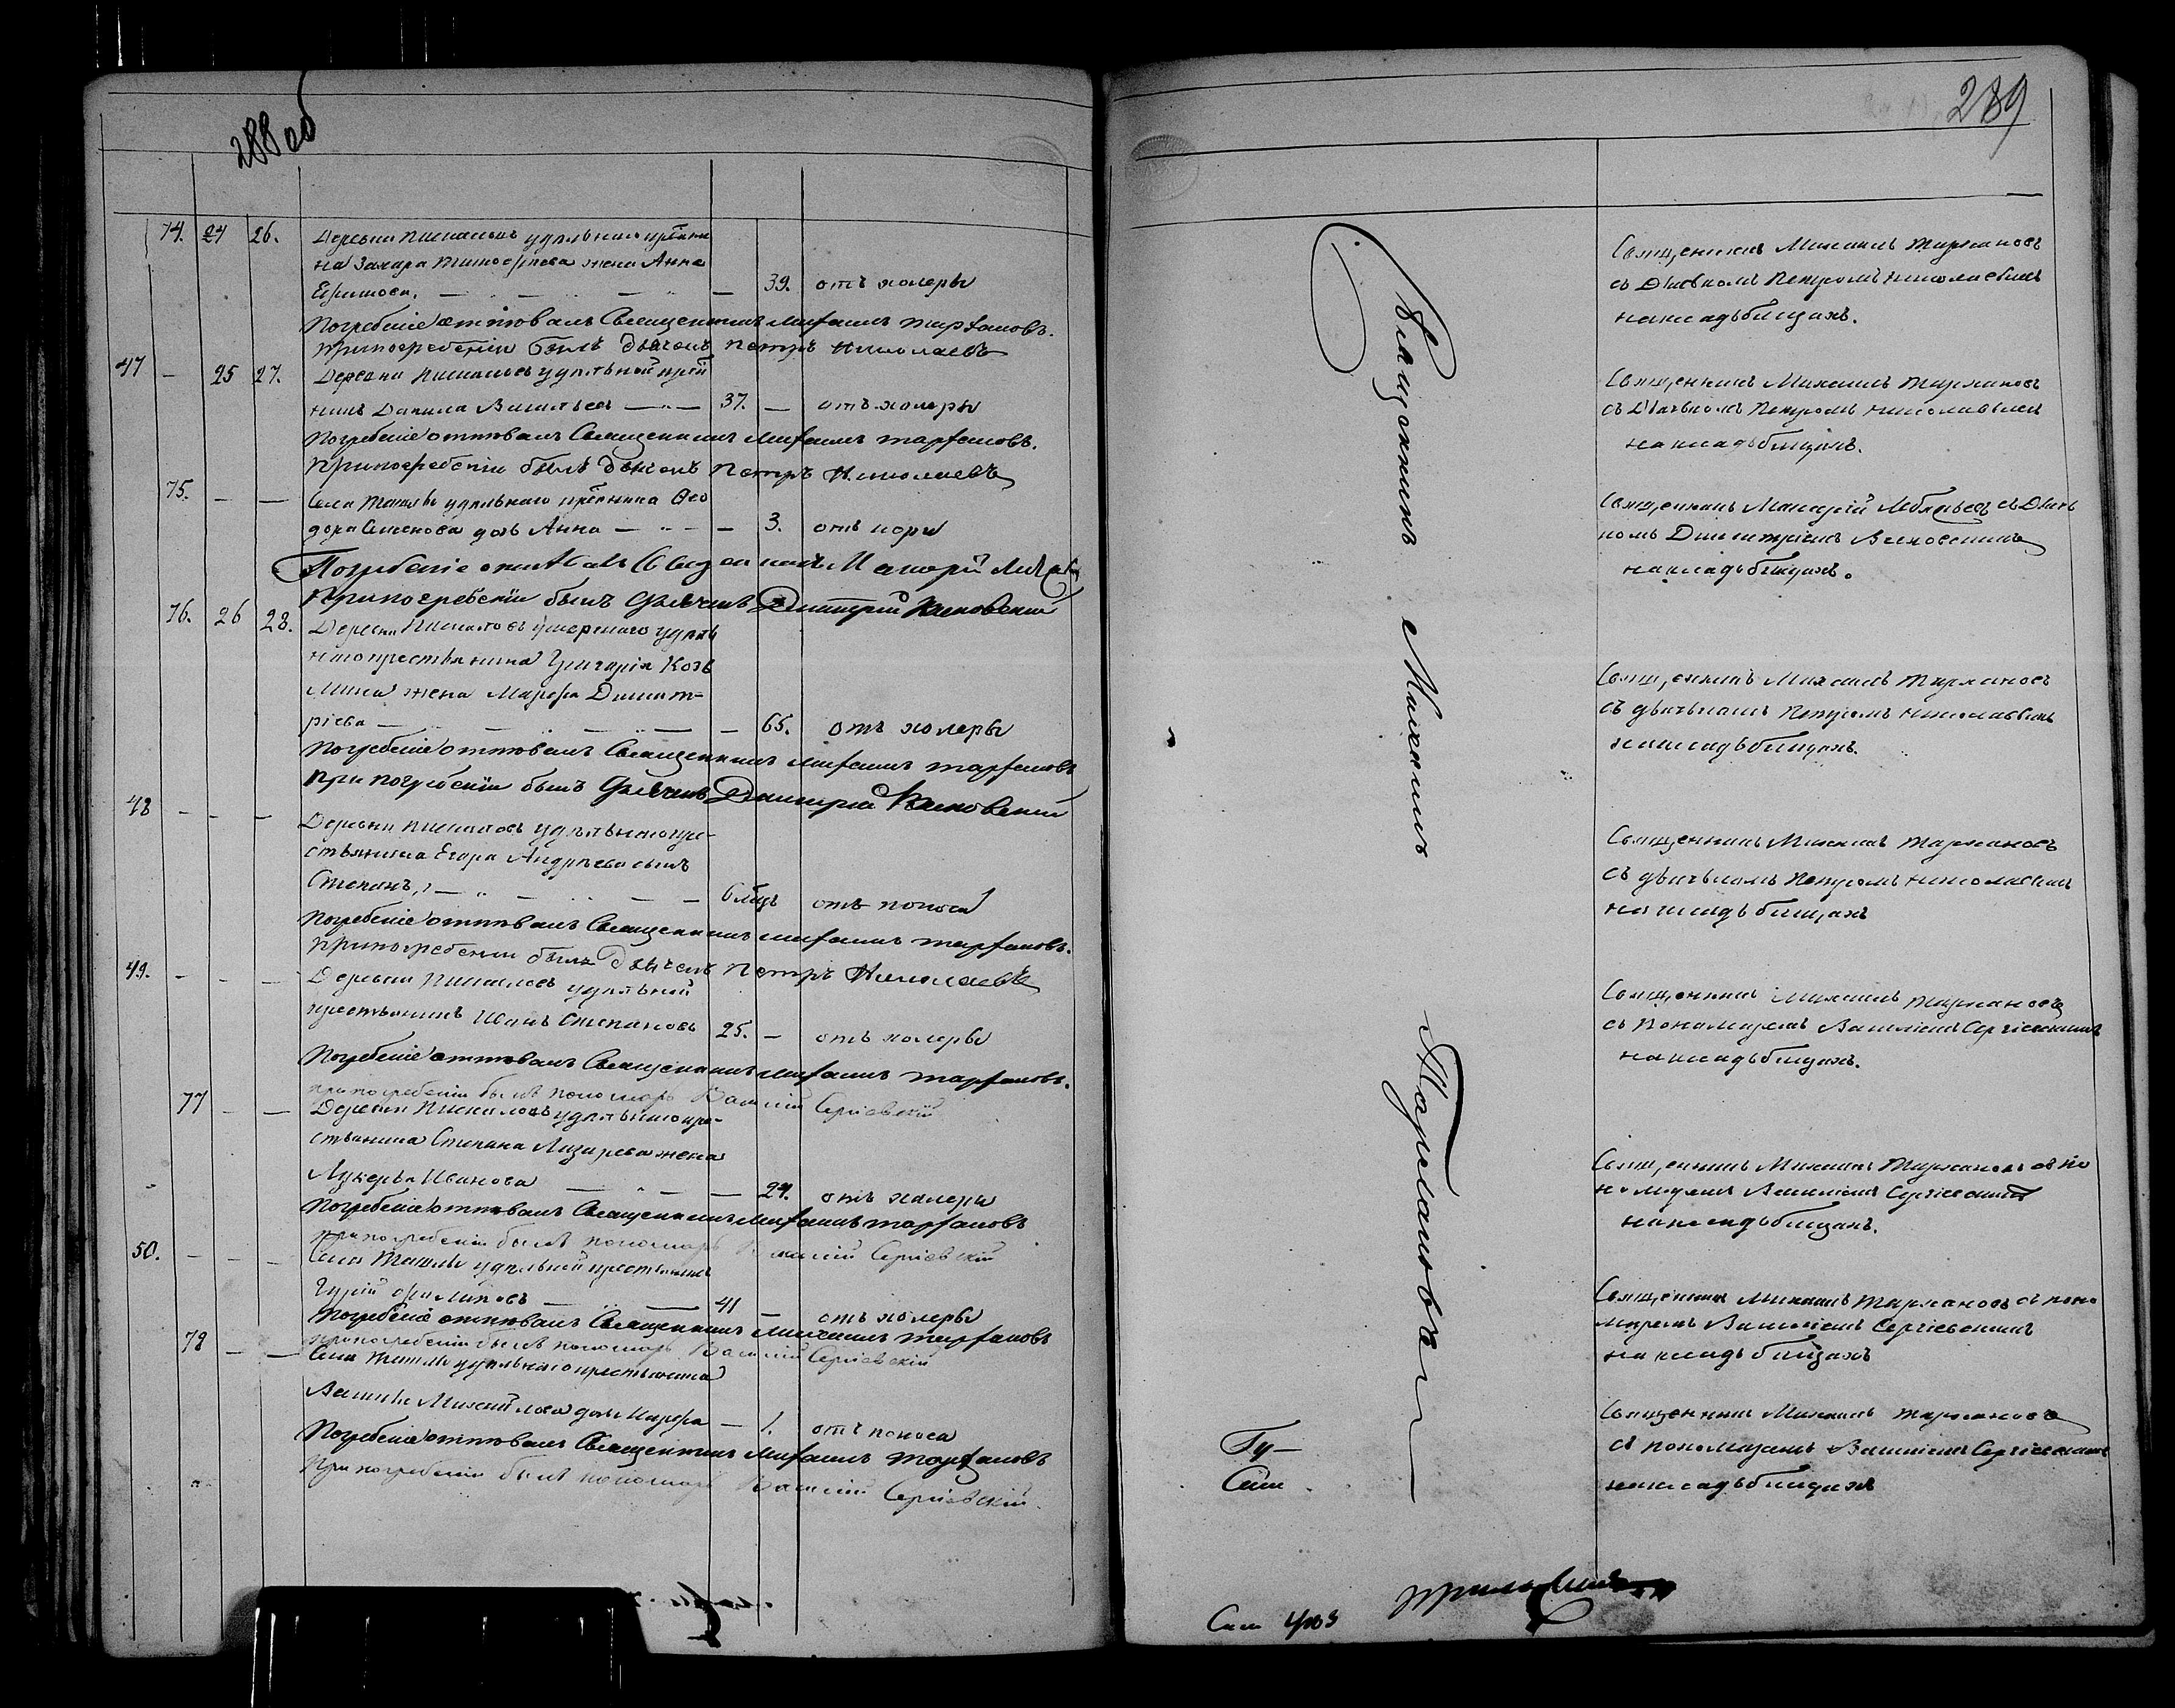 288 об
74. 24 26. Деревни Пискаловъ удѣльнаго крестьяни
на Захара Тимофѣева жена Анна
Ефимова. — 39. отъ холеры
Погребеніе отпѣвалъ Священникъ Михаилъ Тарханов.
При погребеніи былъ дьячекъ Петръ Николаевъ
47 — 25 27. Деревни Пискаловъ удѣльной
Данила Васильевъ — 37. — отъ холеры
Погребеніе отпѣвалъ Священникъ Михаилъ Тархановъ.
При погребеніи былъ дьячекъ Петръ Николаевъ
75. — — Села удѣльнаго Ѳео
дора Семенова дочь Анна — 3. отъ кори
Погребеніе отпѣвалъ Священникъ Макарій
При погребеніи былъ дьячекъ Дмитрій
76. 26 28. Деревни Пискаловъ умершаго удѣль
наго крестьянина Григорія Козь
мина жена Марфа Димит-
ріева — 65. отъ холеры
Погребеніе отпѣвалъ Священникъ Михаилъ Тархановъ
При погребеніи былъ дьячекъ Дмитрій
48 — — — Деревни Пискаловъ удѣльнаго кре-
стьянина Егора Андрѣева сынъ
Степанъ, — 6 мѣцъ отъ поноса
Погребеніе отпѣвалъ Священникъ Михаилъ Тархановъ.
При погребеніи былъ дьячекъ Петръ Николаевъ
49. — — — Деревни Пискаловъ удѣльной
крестьянинъ Иванъ Степановъ 25. — отъ холеры
Погребеніе отпѣвалъ Священникъ Михаилъ Тархановъ.
при погребеніи былъ пономарь Василій Сергіевскій
77 — — Деревни Пискаловъ удѣльнаго кре-
стьянина Степана Лазарева жена
Лукерья Иванова — 24. отъ холеры
Погребеніе отпѣвалъ Священникъ Михаилъ Тархановъ
при погребеніи былъ пономарь Василій Сергіевскій
50. — — — Села удѣльной крестьянинъ
Гурій Филиповъ — 41 — отъ холеры
Погребеніе отпѣвалъ Священникъ Михаилъ Тархановъ
при погребеніи былъ пономарь Василій Сергіевскій
78 — — Села удѣльнаго крестьянина
Василья Михайлова дочь — 1. отъ поноса
Погребеніе отпѣвалъ Священникъ Михаилъ Тархановъ
При погребеніи былъ пономарь Василій Сергіевскій.
289
Священникъ Михаилъ Тархановъ
Священникъ Михаилъ Тархановъ
съ Дьячкомъ Петромъ Николаевымъ
на кладьбищахъ.
Священникъ Михаилъ Тархановъ
съ Дьячкомъ Петромъ Николаевымъ
на кладьбищахъ.
Священникъ Макарій съ Дьяч
комъ Димитріемъ
на кладьбищахъ.
Священникъ Михаилъ Тархановъ
съ дьячькомъ Петромъ Николаевымъ
на кладьбищахъ.
Священникъ Михаилъ Тархановъ
съ дьячькомъ Петромъ Николаевымъ
на кладьбищахъ
Священникъ Михаилъ Тархановъ
съ Пономаремъ Василіемъ Сергіевскимъ
на кладьбищахъ.
Священникъ Михаилъ Тархановъ съ по
номаремъ Василіемъ Сергіевскимъ
на кладьбищахъ.
Священникъ Михаилъ Тархановъ съ поно
маремъ Василіемъ Сергіевскимъ
на кладьбищахъ
Священникъ Михаилъ Тархановъ
съ пономаремъ Василіемъ Сергіевскимъ
на кладьбищахъ